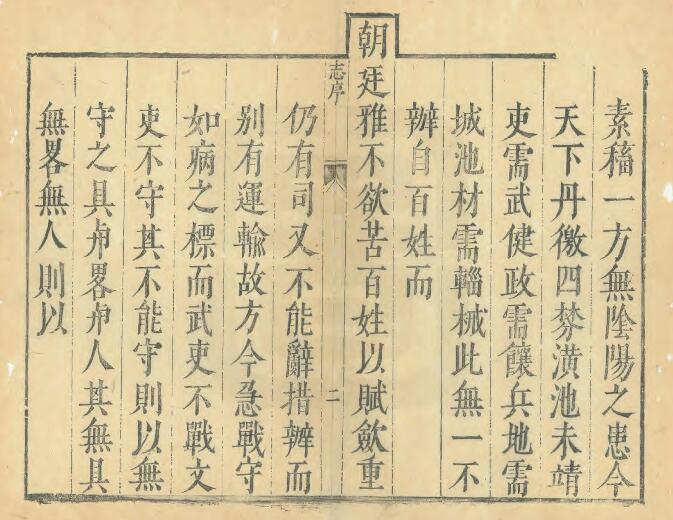 素稿一方無陰陽之患今
天下丹徼四棼潢池未靖
吏需武健政需饟兵地需
城池材需輜械此無一不
辦自百姓而
朝廷雅不欲苦百姓以賦斂重
志序
二
仍有司又不能辭措辦而
别有運輸故方今急戰守
如病之標而武吏不戰文
吏不守其不能守則以無
守之具卢畧卢人其無具
無畧無人則以